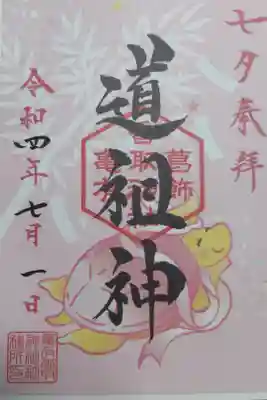 七夕奉拝
道祖神
葛飾
令和四年七月一日